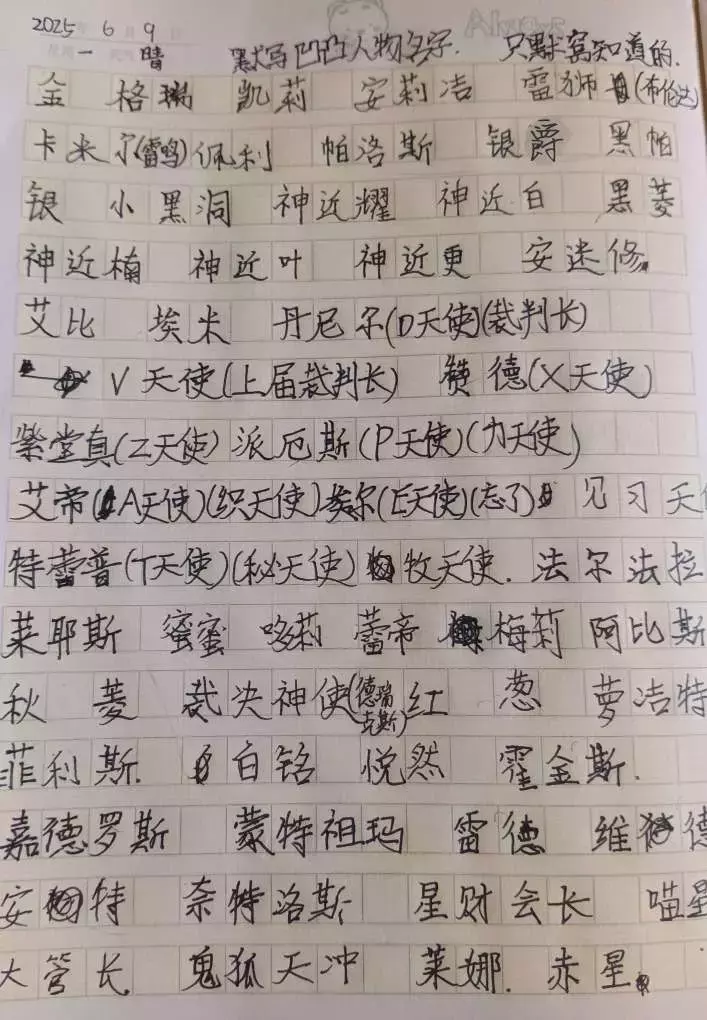 2025 年 6 月 9 日
一 晴 默写凹凸人物名字. 只默写知道的.
金 格瑞 凯莉 安莉洁 雷狮(布伦达)
卡米尔(雷鸣) 佩利 帕洛斯 银爵 黑帕
银 小黑洞 神近耀 神近白 黑菱
神近楠 神近叶 神近更 安迷修
艾比 埃米 丹尼尔(D天使)(裁判长)
V天使(上届裁判长) 赞德(X天使)
紫堂真(Z天使) 派厄斯(P天使)(力天使)
艾帝(A天使)(织天使) 埃尔(E天使)(忘了) 见习天
特蕾普(T天使)(秘天使) 牧天使. 法尔法拉
莱耶斯 蜜蜜 哆莉 蕾帝 梅莉 阿比斯
秋 菱 裁决神使(德瑞克斯) 红 葱 萝洁特
菲利斯. 白铭 悦然 霍金斯.
嘉德罗斯 蒙特祖玛 雷德 维德
安特 奈特洛斯 星财会长 喵星
大管长. 鬼狐天冲 莱娜. 赤星.